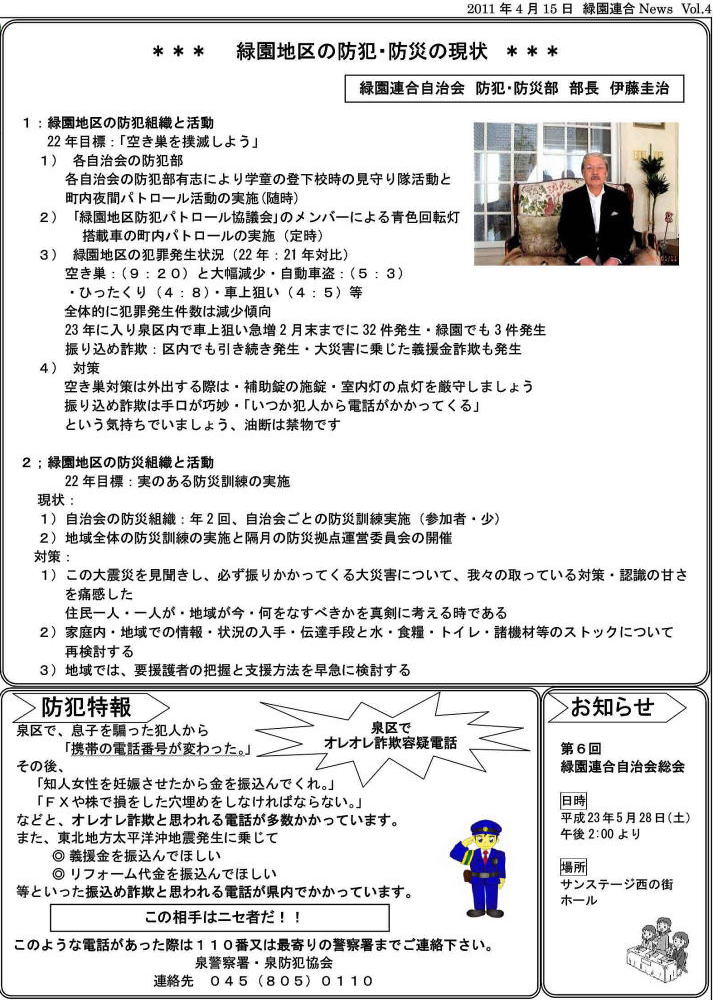 2011年4月15日 緑園連合News Vol.4
＊＊＊ 緑園地区の防犯・防災の現状 ＊＊＊
緑園連合自治会 防犯・防災部 部長 伊藤圭治
１：緑園地区の防犯組織と活動
22年目標：「空き巣を撲滅しよう」
１） 各自治会の防犯部
各自治会の防犯部有志により学童の登下校時の見守り隊活動と
町内夜間パトロール活動の実施（随時）
２） 「緑園地区防犯パトロール協議会」のメンバーによる青色回転灯
搭載車の町内パトロールの実施（定時）
３） 緑園地区の犯罪発生状況（22年：21年対比）
空き巣：（９：２０）と大幅減少・自動車盗：（５：３）
・ひったくり（４：８）・車上狙い（４：５）等
全体的に犯罪発生件数は減少傾向
23年に入り泉区内で車上狙い急増2月末までに32件発生・緑園でも3件発生
振り込め詐欺：区内でも引き続き発生・大災害に乗じた義援金詐欺も発生
４） 対策
空き巣対策は外出する際は・補助錠の施錠・室内灯の点灯を厳守しましょう
振り込め詐欺は手口が巧妙・「いつか犯人から電話がかかってくる」
という気持ちでいましょう、油断は禁物です
２；緑園地区の防災組織と活動
22年目標：実のある防災訓練の実施
現状：
１）自治会の防災組織：年2回、自治会ごとの防災訓練実施（参加者・少）
２）地域全体の防災訓練の実施と隔月の防災拠点運営委員会の開催
対策：
１）この大震災を見聞きし、必ず振りかかってくる大災害について、我々の取っている対策・認識の甘さ
を痛感した
住民一人・一人が・地域が今・何をなすべきかを真剣に考える時である
２）家庭内・地域での情報・状況の入手・伝達手段と水・食糧・トイレ・諸機材等のストックについて
再検討する
３）地域では、要援護者の把握と支援方法を早急に検討する
防犯特報
泉区で
オレオレ詐欺容疑電話
泉区で、息子を騙った犯人から
「携帯の電話番号が変わった。」
その後、
「知人女性を妊娠させたから金を振込んでくれ。」
「ＦＸや株で損をした穴埋めをしなければならない。」
などと、オレオレ詐欺と思われる電話が多数かかっています。
また、東北地方太平洋沖地震発生に乗じて
◎ 義援金を振込んでほしい
◎ リフォーム代金を振込んでほしい
等といった振込め詐欺と思われる電話が県内でかかっています。
この相手はニセ者だ！！
このような電話があった際は１１０番又は最寄りの警察署までご連絡下さい。
泉警察署・泉防犯協会
連絡先 ０４５（８０５）０１１０
お知らせ
第６回
緑園連合自治会総会
日時
平成23年5月28日（土）
午後2:00より
場所
サンステージ西の街
ホール